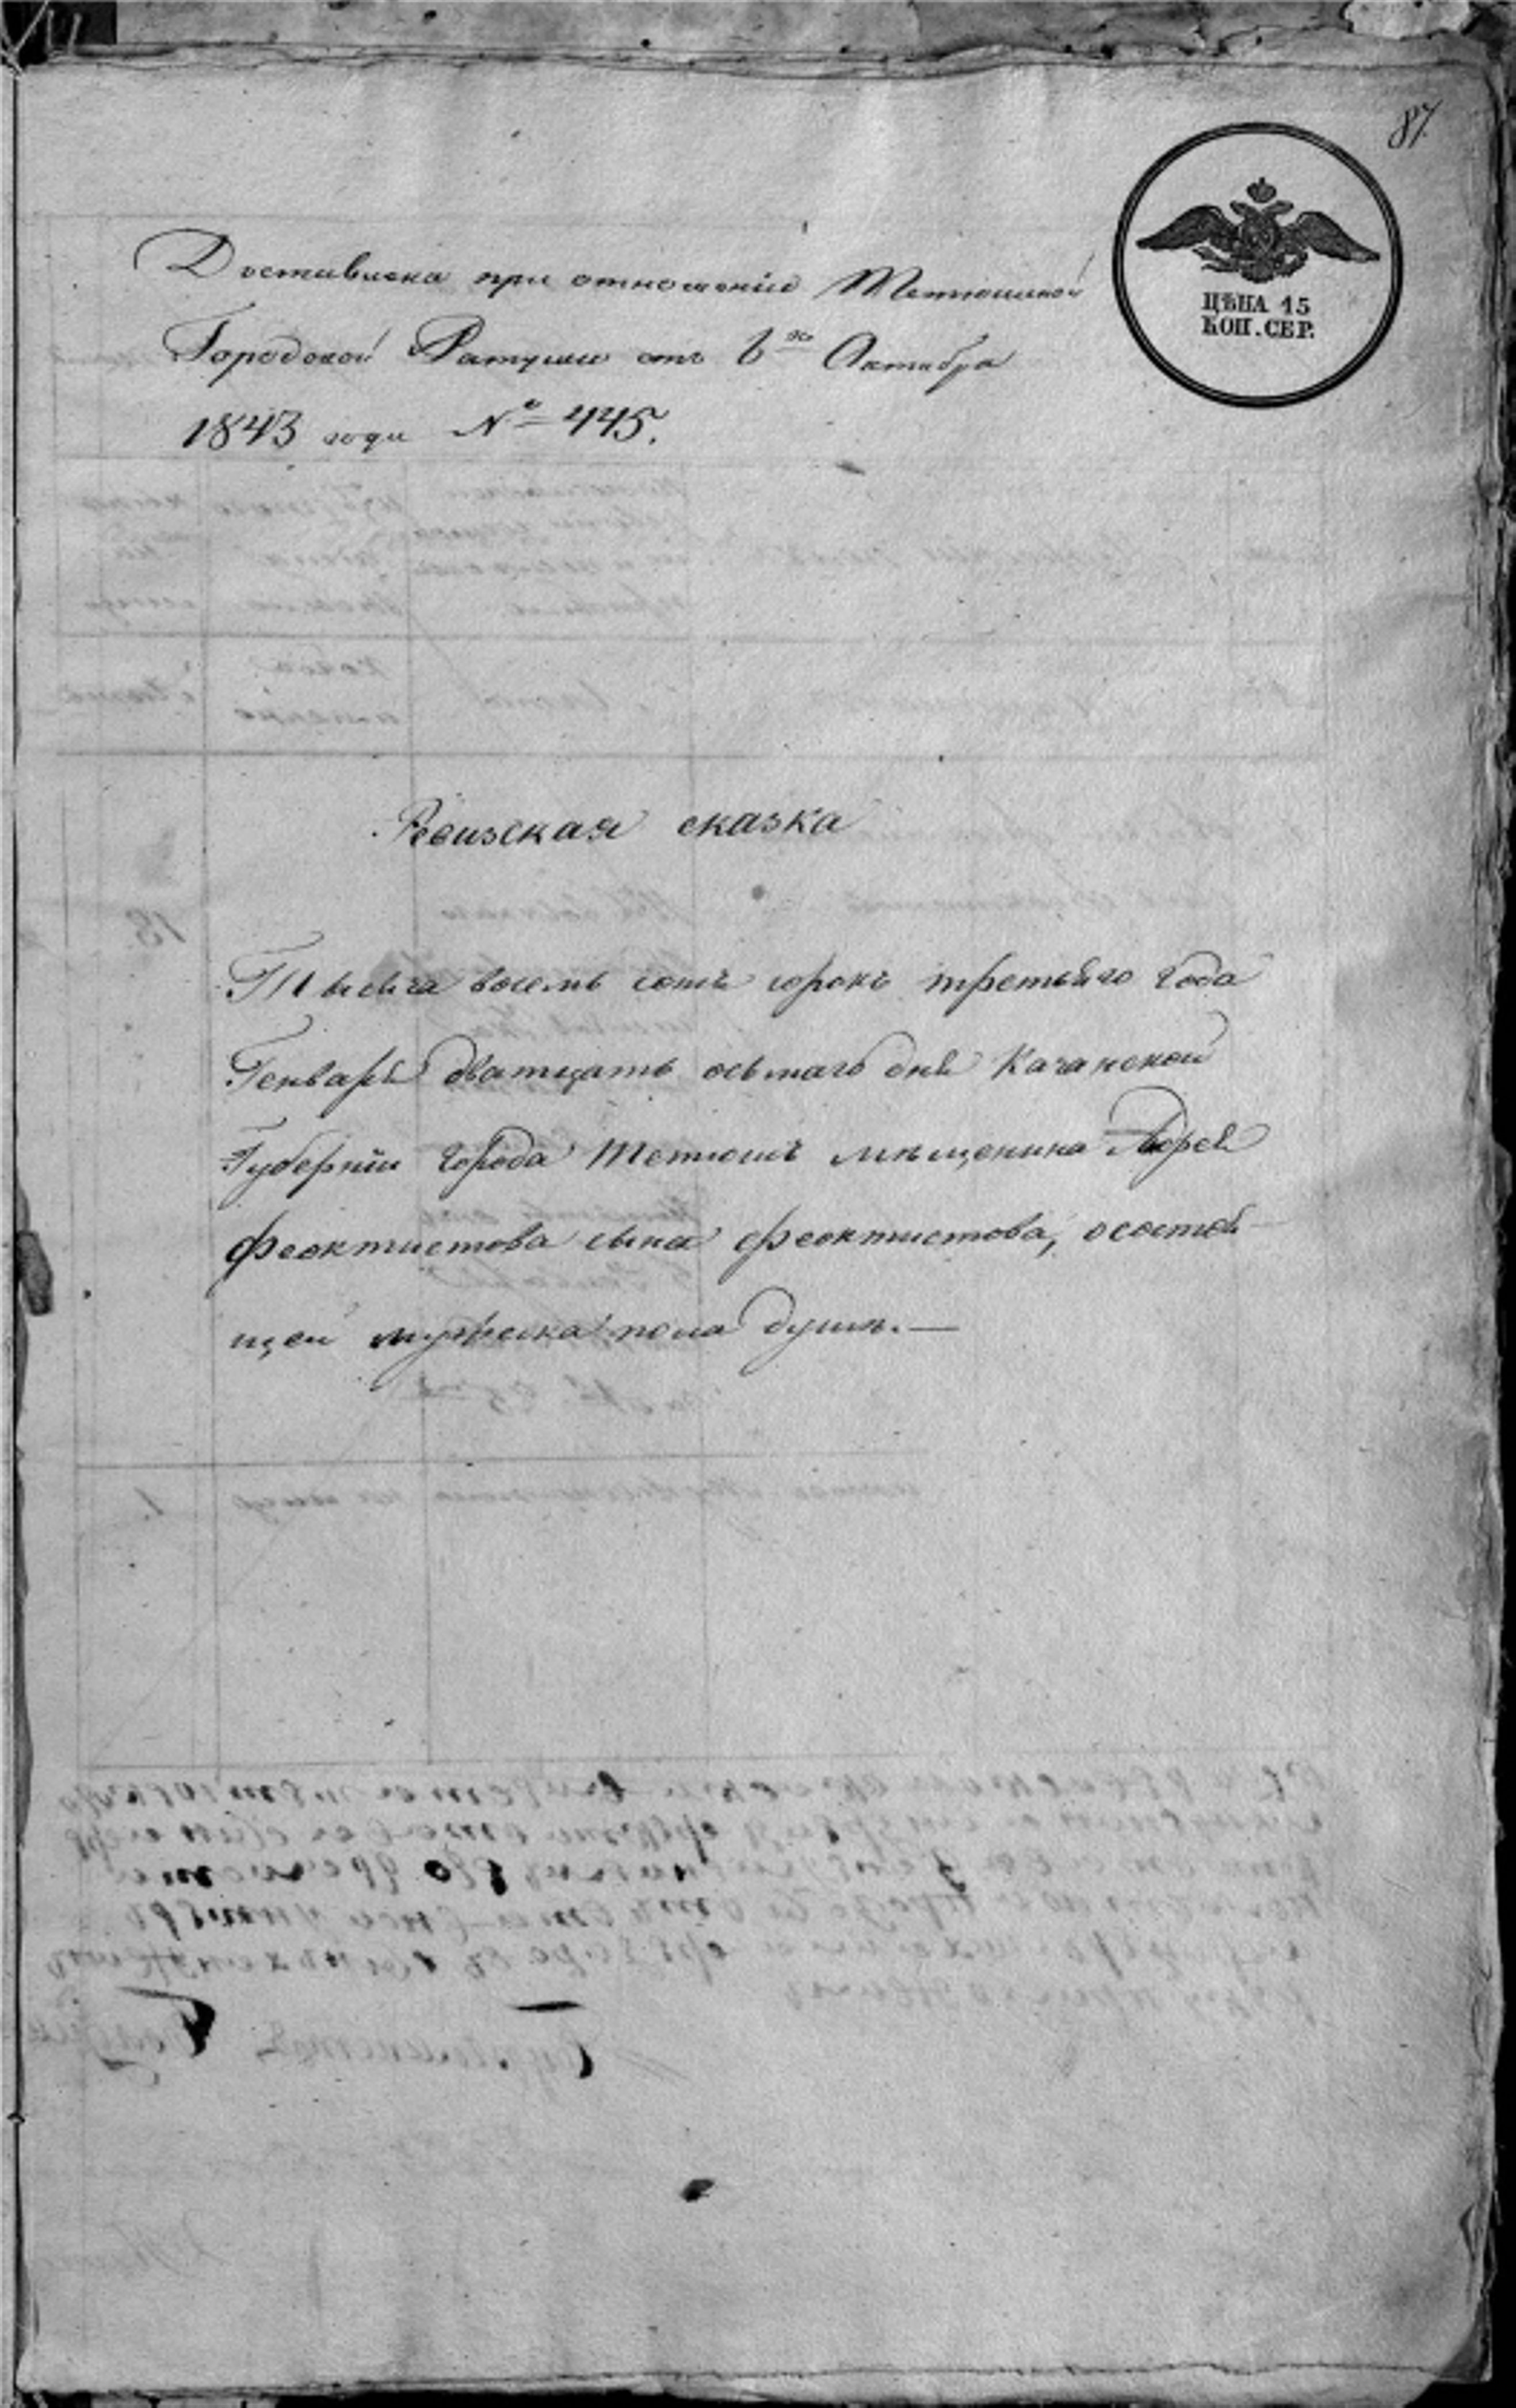 87.
ЦѢНА 15
КОП. СЕР.
Доставлена при отношеніи Тетюшской
Городской Ратуши отъ 6го Октября
1843 года № 445.
Ревизская сказка
Тысяча восемь сотъ сорокъ третьяго года
Генваря дватцать осьмаго дня Казанской
Губерніи города Тетюшъ мѣщенина
Феоктистова сына Феоктистова, о состоя
щей мужеска пола душѣ.—